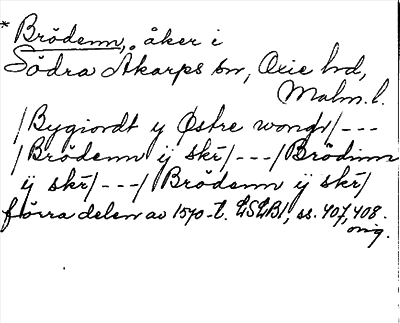 * Brödenn, åker i
Södra Åkarps sn, Oxie hd,
Malm. l.
/Bygiordt y Østre wong/---
/Brödenn ÿ skr/---/Brödinn
ÿ skr/---/ Brödenn ÿ skr/
förra delen av 1570-t. LSLB1, ss. 407, 408.
orig.